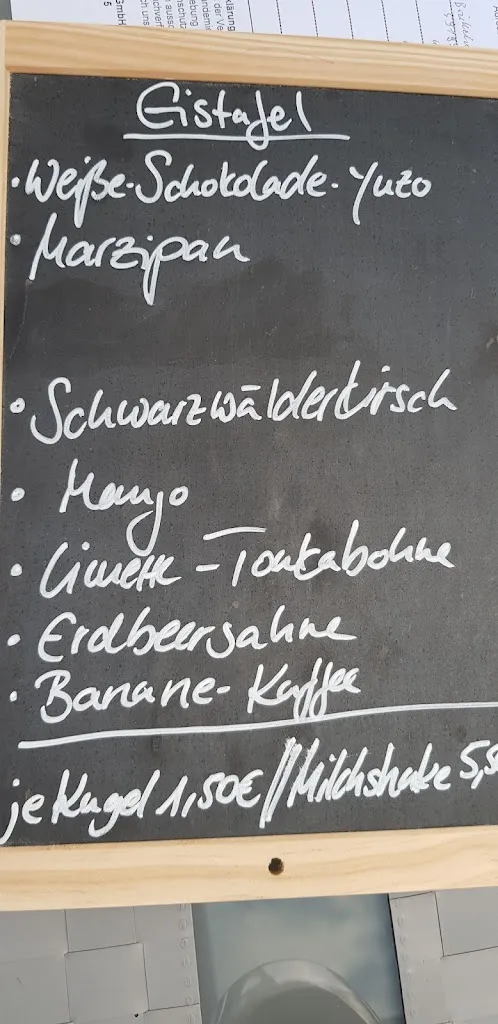 Eistafel
• Weiße-Schokolade-Yuzo
• Marzipan
• Schwarzwälderkirsch
• Mango
• Limette - Tonkabohne
• Erdbeersahne
• Banane- Kaffee
je Kugel 1,50€ // Milchshake 5,5